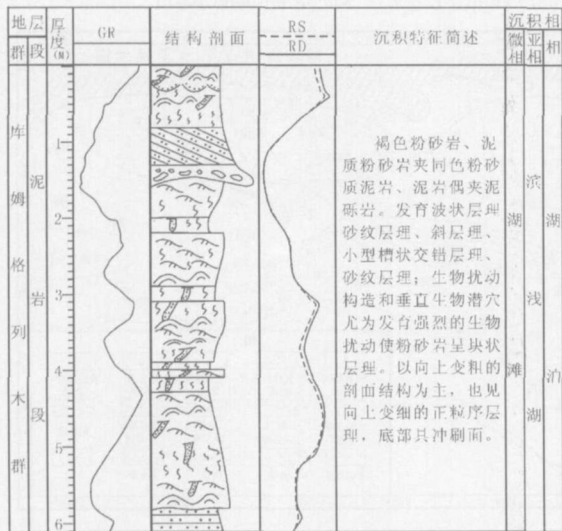 地层
厚度(M)
GR
结构剖面
RS
RD
沉积特征简述
沉积相
群
段
微相
亚相
相
库姆格列木群
泥岩段
1
2
3
4
5
6
褐色粉砂岩、泥
质粉砂岩夹同色粉砂
质泥岩、泥岩偶夹泥
砾岩。发育波状层理
砂纹层理、斜层理、
小型槽状交错层理、
砂纹层理；生物扰动
构造和垂直生物潜穴
尤为发育强烈的生物
扰动使粉砂岩呈块状
层理。以向上变粗的
剖面结构为主，也见
向上变细的正粒序层
理，底部具冲刷面。
湖滩
滨浅湖
湖泊